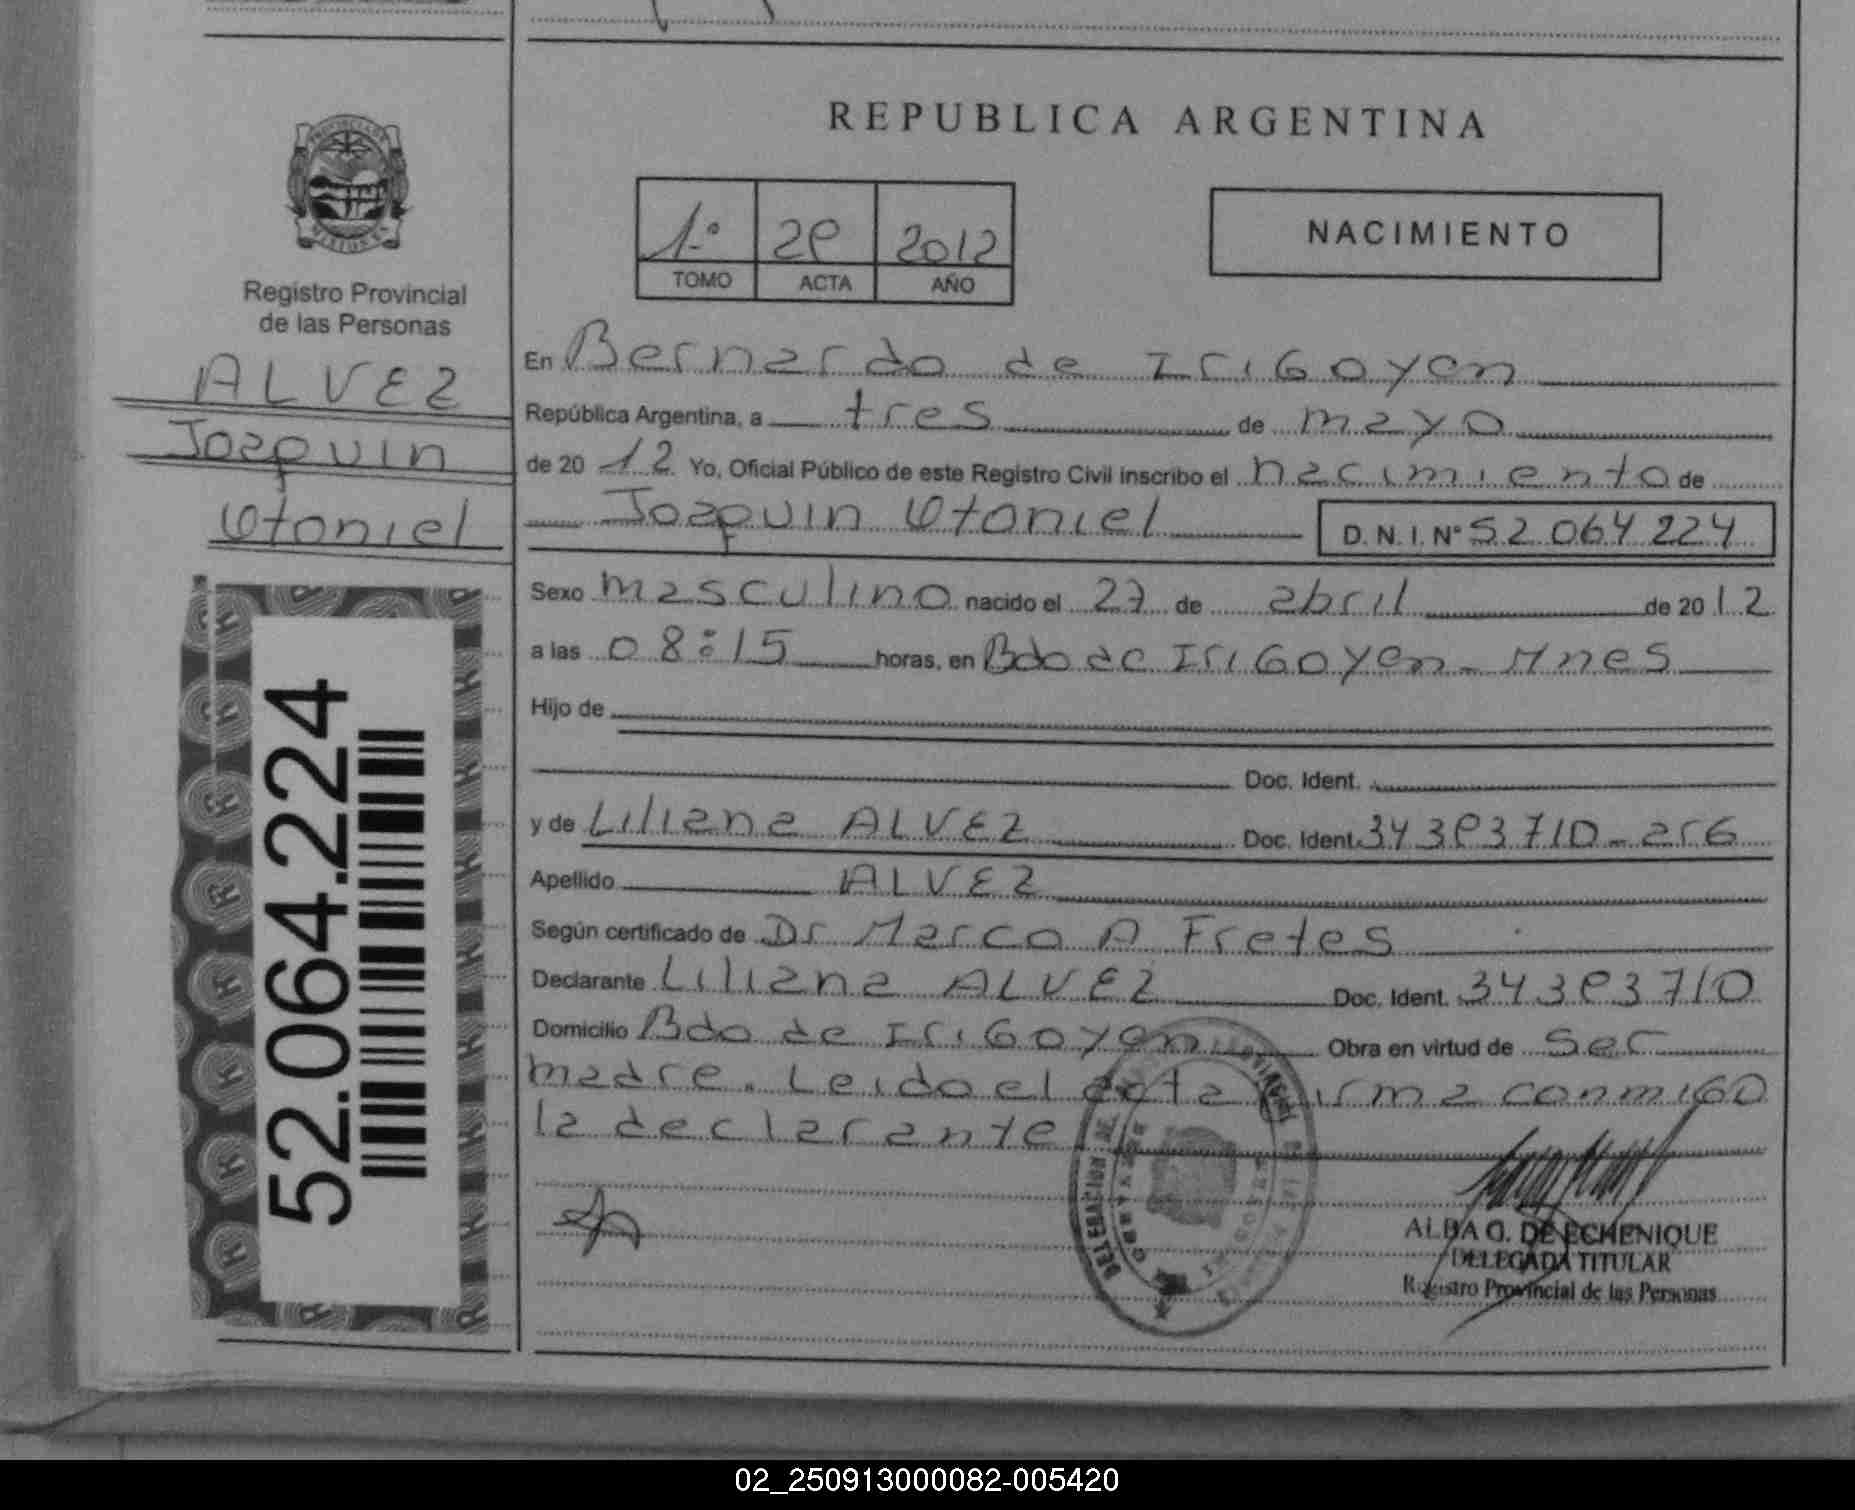 REPUBLICA ARGENTINA
1º 29 2012
TOMO ACTA AÑO
NACIMIENTO
PROVINCIA DE
MISIONES
Registro Provincial
de las Personas
ALVEZ
Joaquin
Otoniel
52.064.224
En Bernardo de Irigoyen
República Argentina, a tres de mayo
de 2012 Yo, Oficial Público de este Registro Civil inscribo el nacimiento de
Joaquin Otoniel D.N.I. Nº 52 064 224
Sexo masculino nacido el 27 de abril de 2012
a las 08:15 horas, en Bdo de Irigoyen - Mnes
Hijo de
Doc. Ident.
y de Liliana ALVEZ Doc. Ident. 34393710 - arg
Apellido ALVEZ
Según certificado de Dr Marco A Fretes
Declarante Liliana ALVEZ Doc. Ident. 34393710
Domicilio Bdo de Irigoyen Obra en virtud de ser
madre. Leido el acta firma conmigo
la declarante
ALBA G. DE ECHENIQUE
DELEGADA TITULAR
Registro Provincial de las Personas
02_250913000082-005420